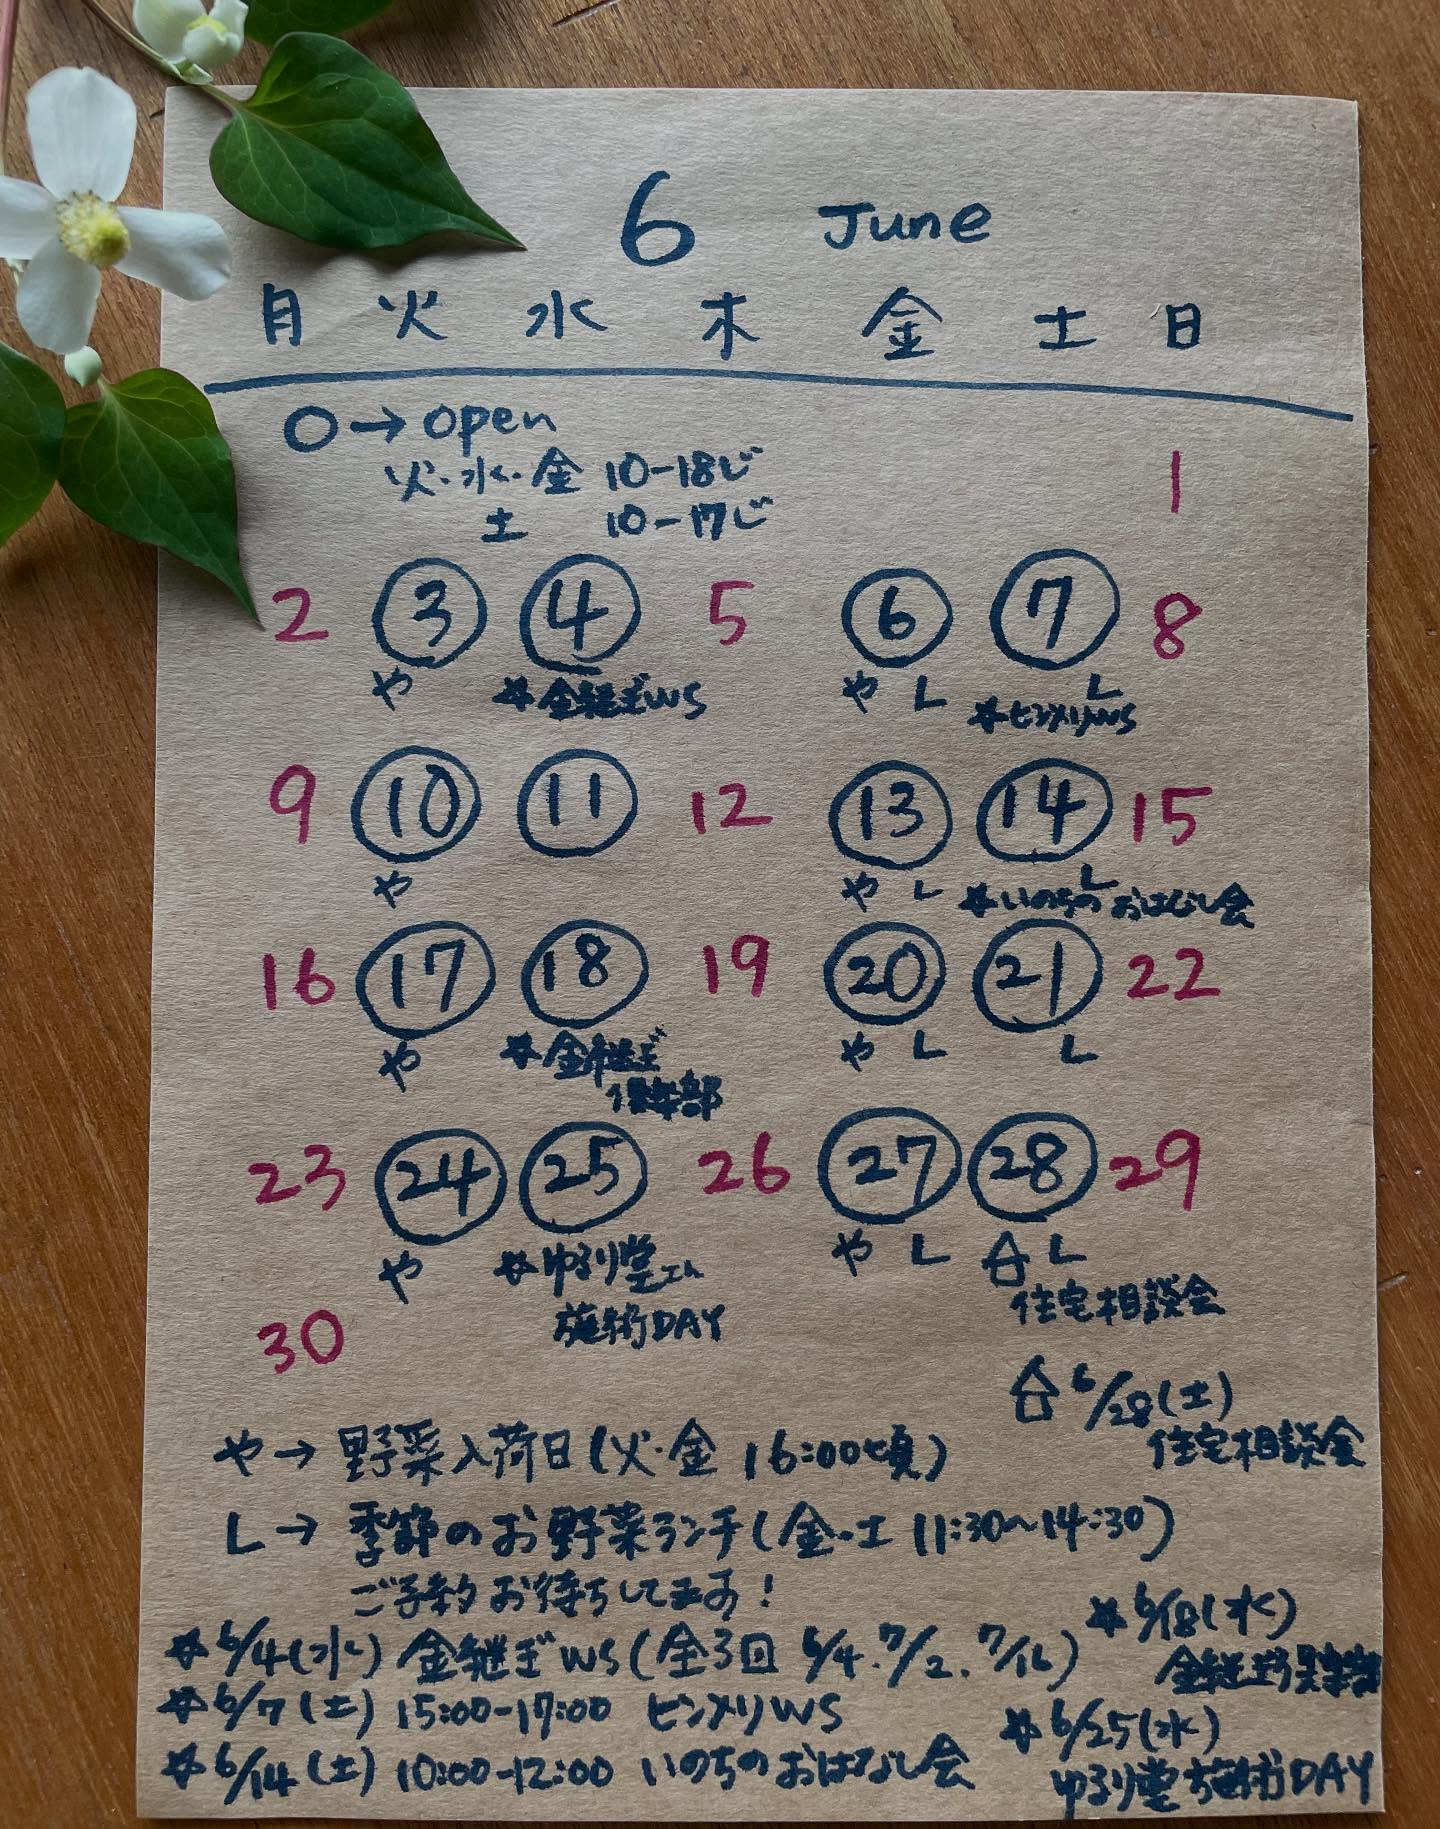 6 June
月 火 水 木 金 土 日
○→open
火・水・金 10-18じ
土 10-17じ
1
2 3 4 5 6 7 8
や ☆金継ぎWS や L L
☆ピンメリWS
9 10 11 12 13 14 15
や や L L
☆いのちのおはなし会
16 17 18 19 20 21 22
や ☆金継ぎ や L L
倶楽部
23 24 25 26 27 28 29
や ☆ゆるり堂さん や L L
施術DAY 住宅相談会
30
6/28(土)
住宅相談会
や→野菜入荷日(火・金 16:00頃)
L→季節のお野菜ランチ(金・土 11:30~14:30)
ご予約お待ちしてます!
☆6/4(水) 金継ぎWS(全3回 6/4.7/2.7/16)
☆6/7(土) 15:00-17:00 ピンメリWS
☆6/14(土) 10:00-12:00 いのちのおはなし会
☆6/18(水)
金継ぎ倶楽部
☆6/25(水)
ゆるり堂施術DAY